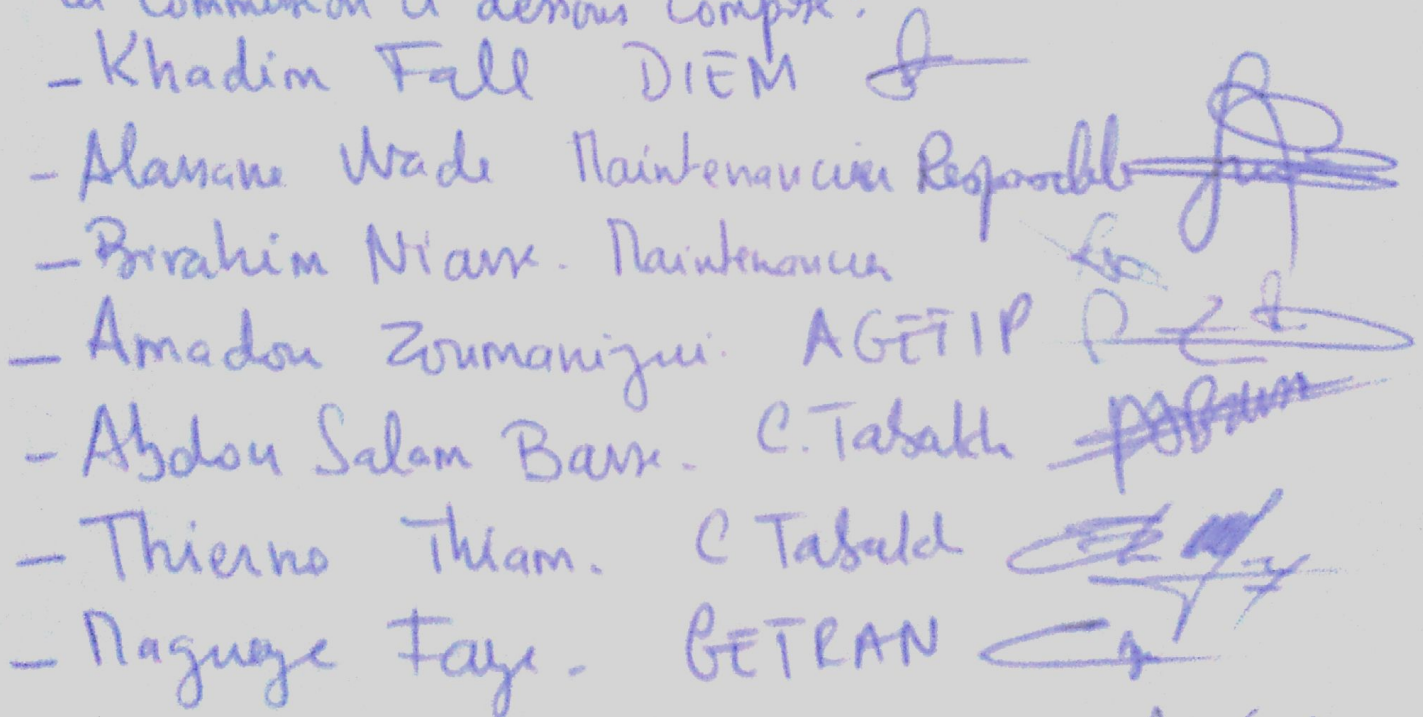 la commission ci dessous compose.
- Khadim Fall DIEM
- Alassane Wade Maintenancier Responsable
- Birahim Niasse. Maintenancier
- Amadou Zoumanigui. AGETIP
- Abdou Salam Basse. C. Tabakh
- Thierno Thiam. C Tabakh
- Magueye Faye. GETRAN